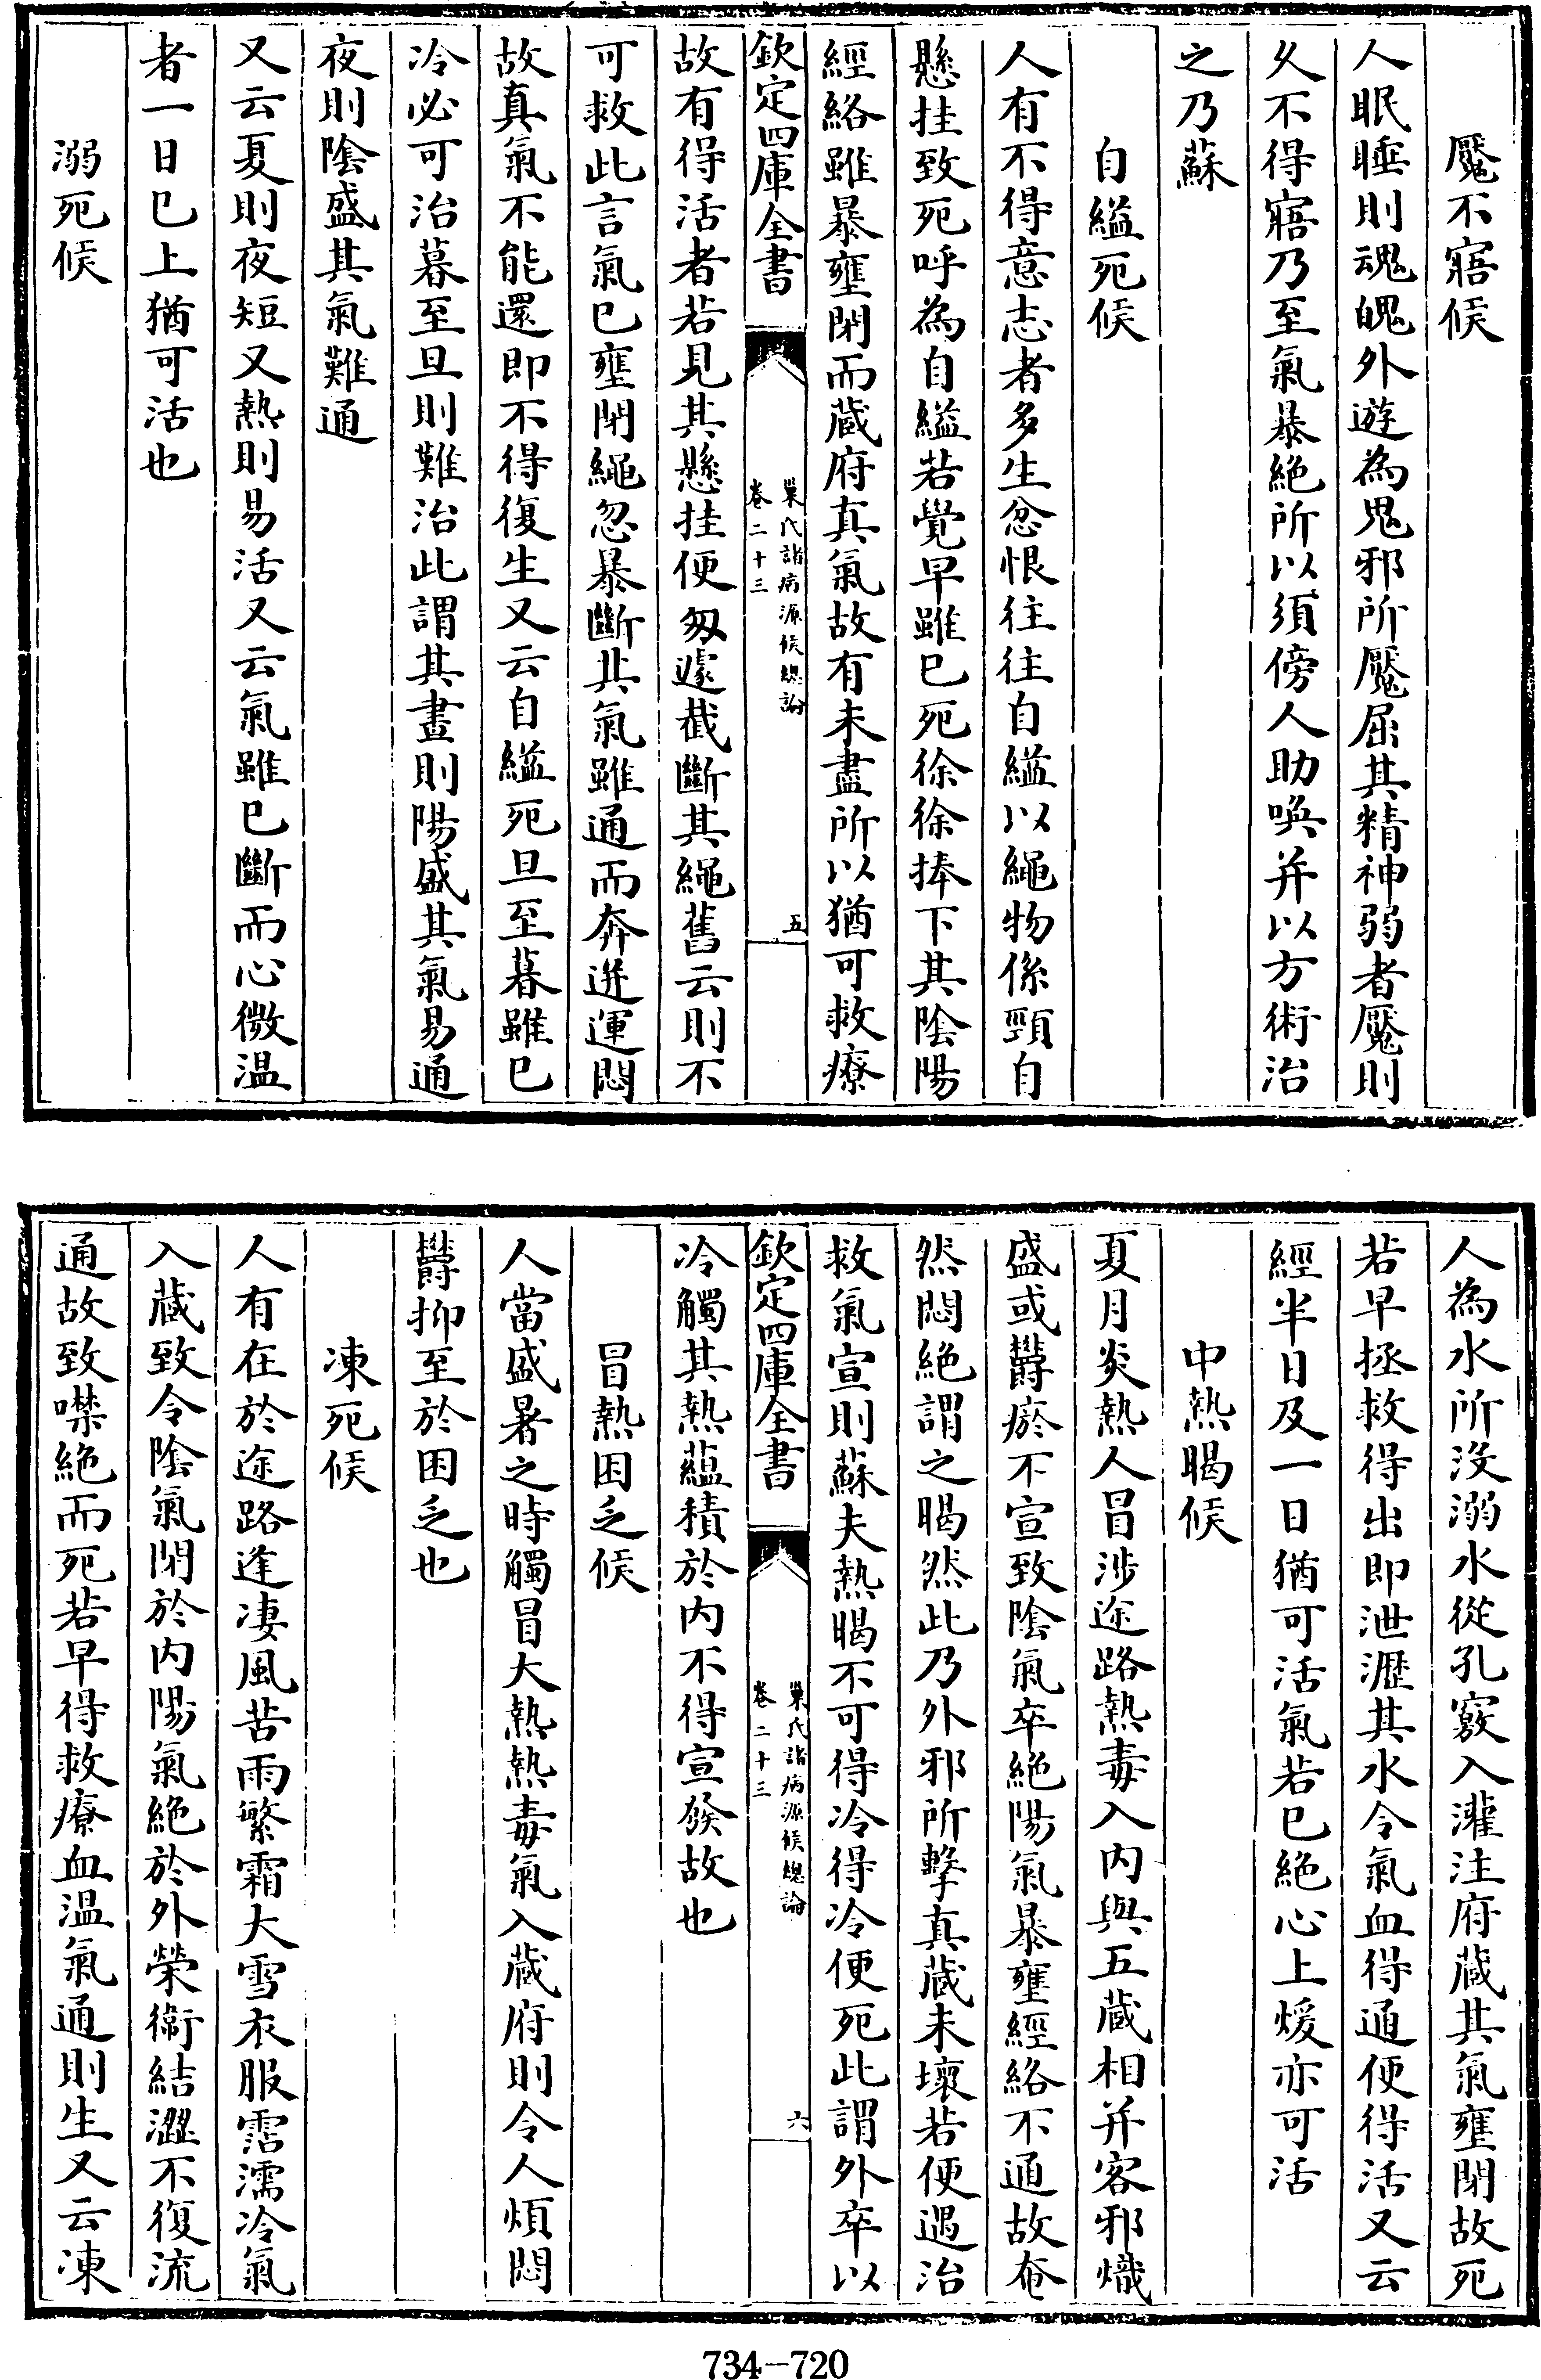 魘不寤候
人眠睡則魂魄外遊為鬼邪所魘屈其精神弱者魘則
乆不得寤乃至氣暴絶所以須傍人助喚并以方術治
之乃蘇
自縊死候
人有不得意志者多生忿恨往往自縊以繩物係頸自
懸挂致死呼為自縊若覺早雖已死徐徐捧下其陰陽
經絡雖暴壅閉而蔵府真氣故有未盡所以猶可救療
欽定四庫全書
巢氏諸病源候總論
卷二十三
五
故有得活者若見其懸挂便匆遽截斷其繩舊云則不
可救此言氣已壅閉繩忽暴斷其氣雖通而奔迸運悶
故真氣不能還即不得復生又云自縊死旦至暮雖已
冷必可治暮至旦則難治此謂其晝則陽盛其氣易通
夜則陰盛其氣難通
又云夏則夜短又熱則易活又云氣雖已斷而心微温
者一日已上猶可活也
溺死候
人為水所沒溺水從孔竅入灌注府蔵其氣壅閉故死
若早拯救得出即泄瀝其水令氣血得通便得活又云
經半日及一日猶可活氣若已絶心上煖亦可活
中熱暍候
夏月炎熱人冒涉途路熱毒入内與五蔵相并客邪熾
盛或欝瘀不宣致陰氣卒絶陽氣暴壅經絡不通故奄
然悶絶謂之暍然此乃外邪所擊真蔵未壞若便遇治
救氣宣則蘇夫熱暍不可得冷得冷便死此謂外卒以
欽定四庫全書
巢氏諸病源候總論
卷二十三
六
冷觸其熱藴積於内不得宣發故也
冒熱困乏候
人當盛暑之時觸冒大熱熱毒氣入蔵府則令人煩悶
欝抑至於困乏也
凍死候
人有在於途路逢凄風苦雨繁霜大雪衣服霑濡冷氣
入蔵致令陰氣閉於内陽氣絶於外榮衛結澀不復流
通故致噤絶而死若早得救療血温氣通則生又云凍
734-720